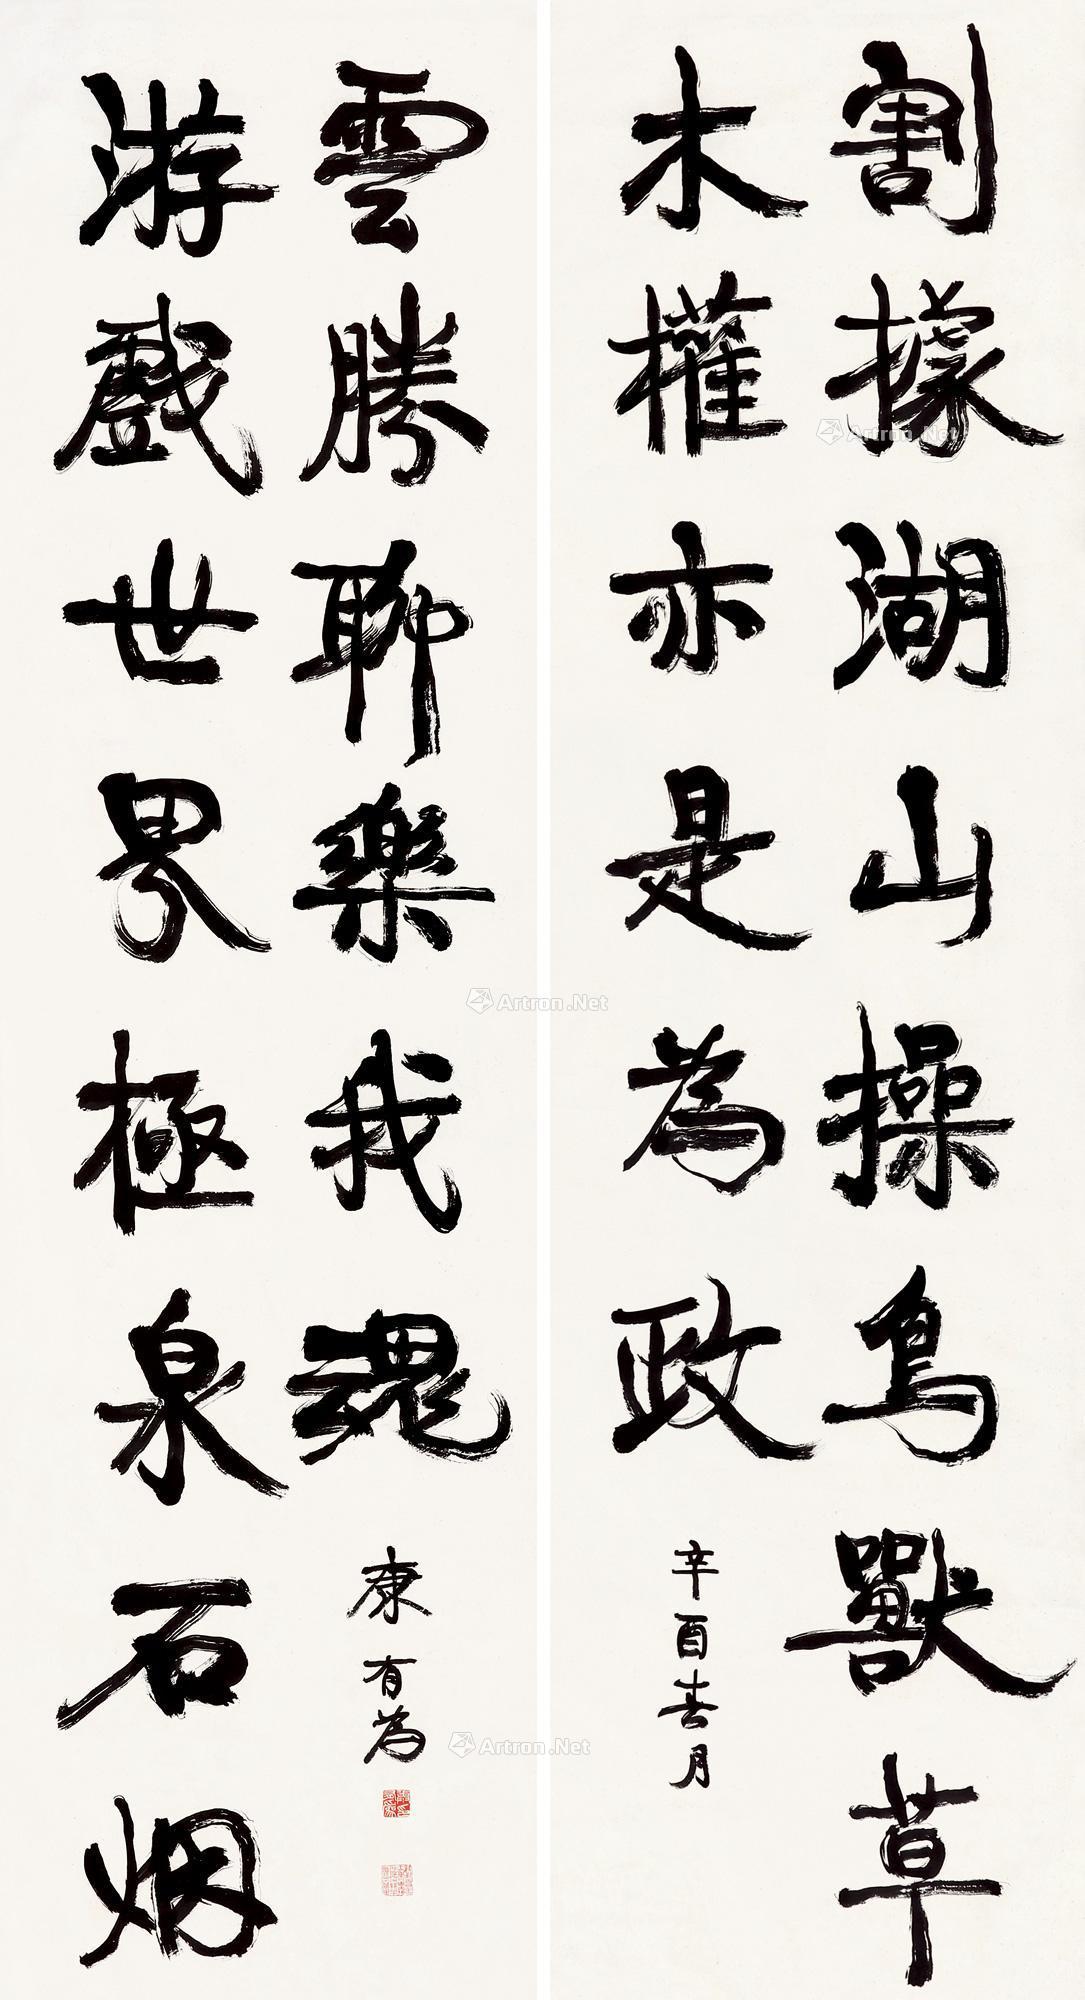 割據湖山操鳥獸草
木權亦是為政
辛酉春月
游戲世界極泉石烟
雲勝聊樂我魂
康有為
Artron.Net
Artron.Net
Artron.Net